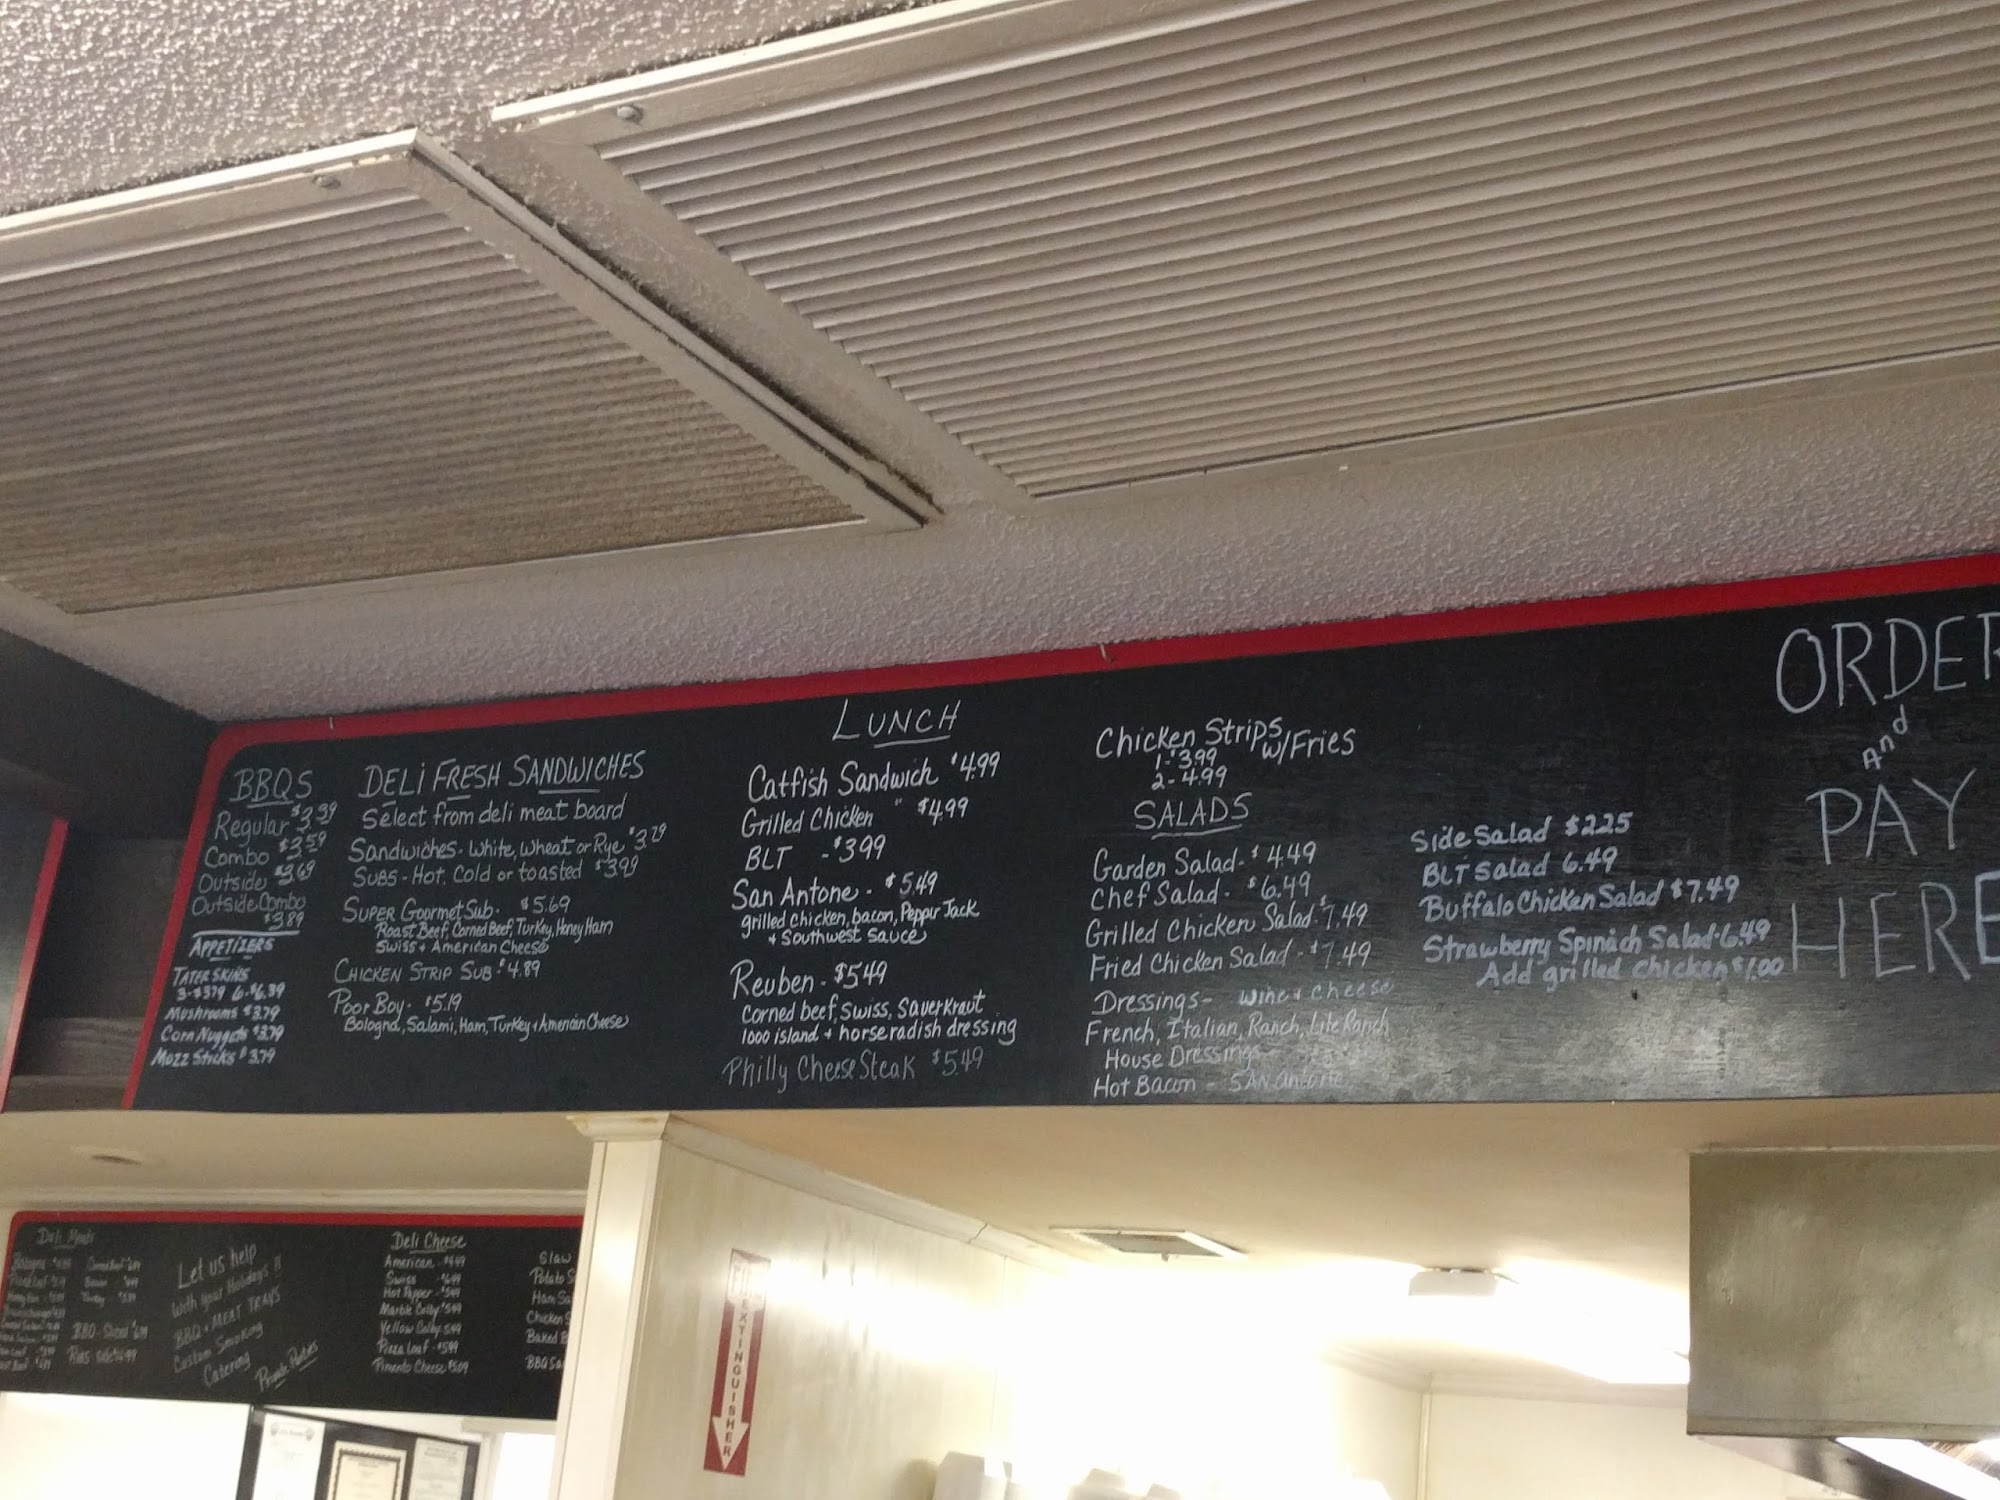 BBQS
Regular $3.39
Combo $3.59
Outside $3.69
Outside Combo
$3.89
APPETIZERS
TATER SKINS
3-$3.79 6-$6.39
Mushrooms $3.79
Corn Nuggets $3.79
Mozz Sticks $3.79
DELI FRESH SANDWICHES
Select from deli meat board
Sandwiches - White, Wheat or Rye $3.29
SUBS - Hot, Cold or toasted $3.99
SUPER Gourmet Sub - $5.69
Roast Beef, Corned Beef, Turkey, Honey Ham
Swiss + American Cheese
CHICKEN STRIP SUB - $4.89
Poor Boy - $5.19
Bologna, Salami, Ham, Turkey + American Cheese
LUNCH
Catfish Sandwich $4.99
Grilled Chicken " $4.99
BLT - $3.99
San Antone - $5.49
grilled chicken, bacon, Pepper Jack
+ Southwest Sauce
Reuben - $5.49
Corned beef, Swiss, Sauerkraut
1000 island + horseradish dressing
Philly Cheese Steak $5.49
Chicken Strips w/Fries
1-$3.99
2-4.99
SALADS
Garden Salad - $4.49
Chef Salad - $6.49
Grilled Chicken Salad - $7.49
Fried Chicken Salad - $7.49
Dressings - Wine + Cheese
French, Italian, Ranch, Lite Ranch
House Dressings
Hot Bacon - SAN Antone
Side Salad $2.25
BLT Salad 6.49
Buffalo Chicken Salad $7.49
Strawberry Spinach Salad - 6.49
Add grilled chicken $1.00
ORDER
And
PAY
HERE
Deli Meats
Let us help
With your Holidays !!
BBQ + MEAT TRAYS
Custom Smoking
Catering
Private Parties
Deli Cheese
American
Swiss
Hot Pepper - $5.49
Marble Colby $5.49
Yellow Colby 5.49
Pizza Loaf - $5.99
Pimento Cheese $5.09
Slaw
Potato S
Ham Sa
Chicken S
Baked B
BBQ Sa
EXTINGUISHER